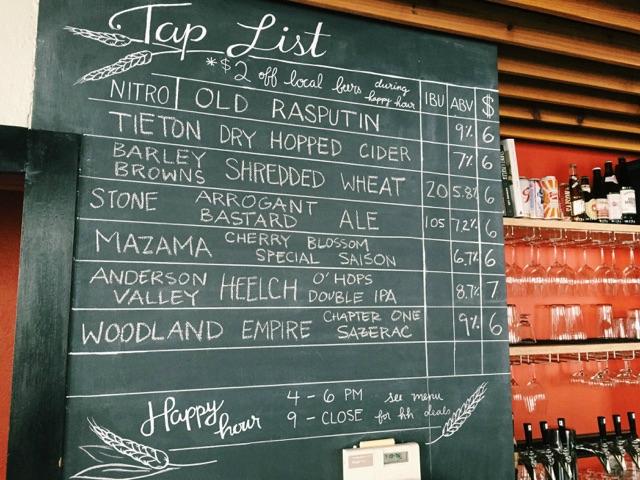 Tap List
*$2 off local beers during happy hour
IBU ABV $
NITRO OLD RASPUTIN 9% 6
TIETON DRY HOPPED CIDER 7% 6
BARLEY BROWNS SHREDDED WHEAT 20 5.8% 6
STONE ARROGANT BASTARD ALE 105 7.2% 6
MAZAMA CHERRY BLOSSOM SPECIAL SAISON 6.7% 6
ANDERSON VALLEY HEELCH O'HOPS DOUBLE IPA 8.7% 7
WOODLAND EMPIRE CHAPTER ONE SAZERAC 9% 6
Happy hour
4 - 6 PM see menu
9 - CLOSE for hh deals